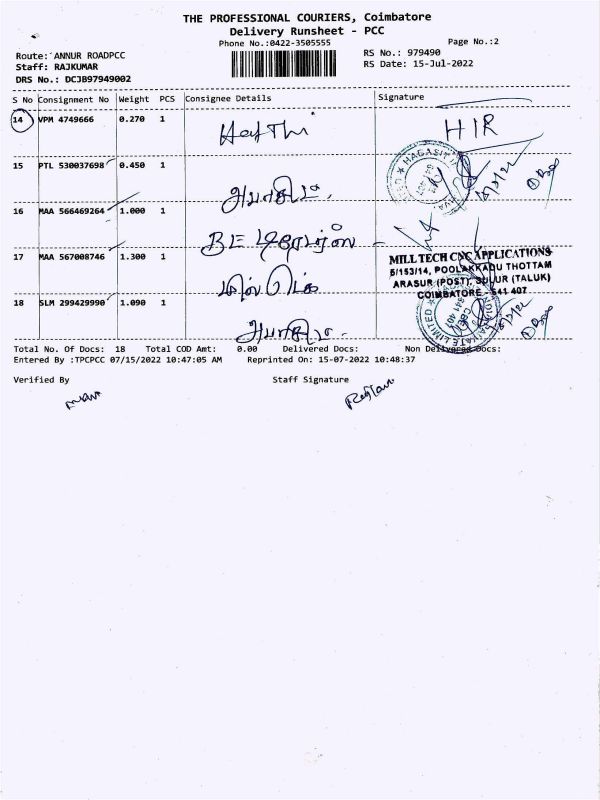 THE PROFESSIONAL COURIERS, Coimbatore
Delivery Runsheet - PCC
Phone No.:0422-3505555
Page No.:2
Route: ANNUR ROADPCC
RS No.: 979490
Staff: RAJKUMAR
RS Date: 15-Jul-2022
DRS No.: DCJB97949002
S No Consignment No Weight PCS Consignee Details Signature
14 VPM 4749666 0.270 1
HIR
15 PTL 530037698 0.450 1
16 MAA 566469264 1.000 1
17 MAA 567008746 1.300 1
MILL TECH CNC APPLICATIONS
6/153/14, POOLAKKADU THOTTAM
ARASUR (POST), SULUR (TALUK)
COIMBATORE - 641 407
18 SLM 299429990 1.090 1
Total No. Of Docs: 18 Total COD Amt: 0.00 Delivered Docs: Non Delivered Docs:
Entered By :TPCPCC 07/15/2022 10:47:05 AM Reprinted On: 15-07-2022 10:48:37
Verified By Staff Signature